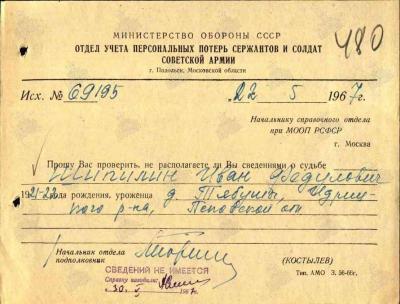 МИНИСТЕРСТВО ОБОРОНЫ СССР
480
ОТДЕЛ УЧЕТА ПЕРСОНАЛЬНЫХ ПОТЕРЬ СЕРЖАНТОВ И СОЛДАТ
СОВЕТСКОЙ АРМИИ
г. Подольск, Московской области
Исх. № 69195
22 5 1967г.
Начальнику справочного отдела
при МООП РСФСР
г. Москва
Прошу Вас проверить, не располагаете ли Вы сведениями о судьбе
Шипилин Иван Фадулович
1921-22 года рождения, уроженца д. Тябуты, Идриц-
кого р-на, Псковской обл.
Начальник отдела
подполковник
(КОСТЫЛЕВ)
СВЕДЕНИЙ НЕ ИМЕЕТСЯ
Справку наводила:
30. V 1967г.
Тип. АМО З. 56-66г.